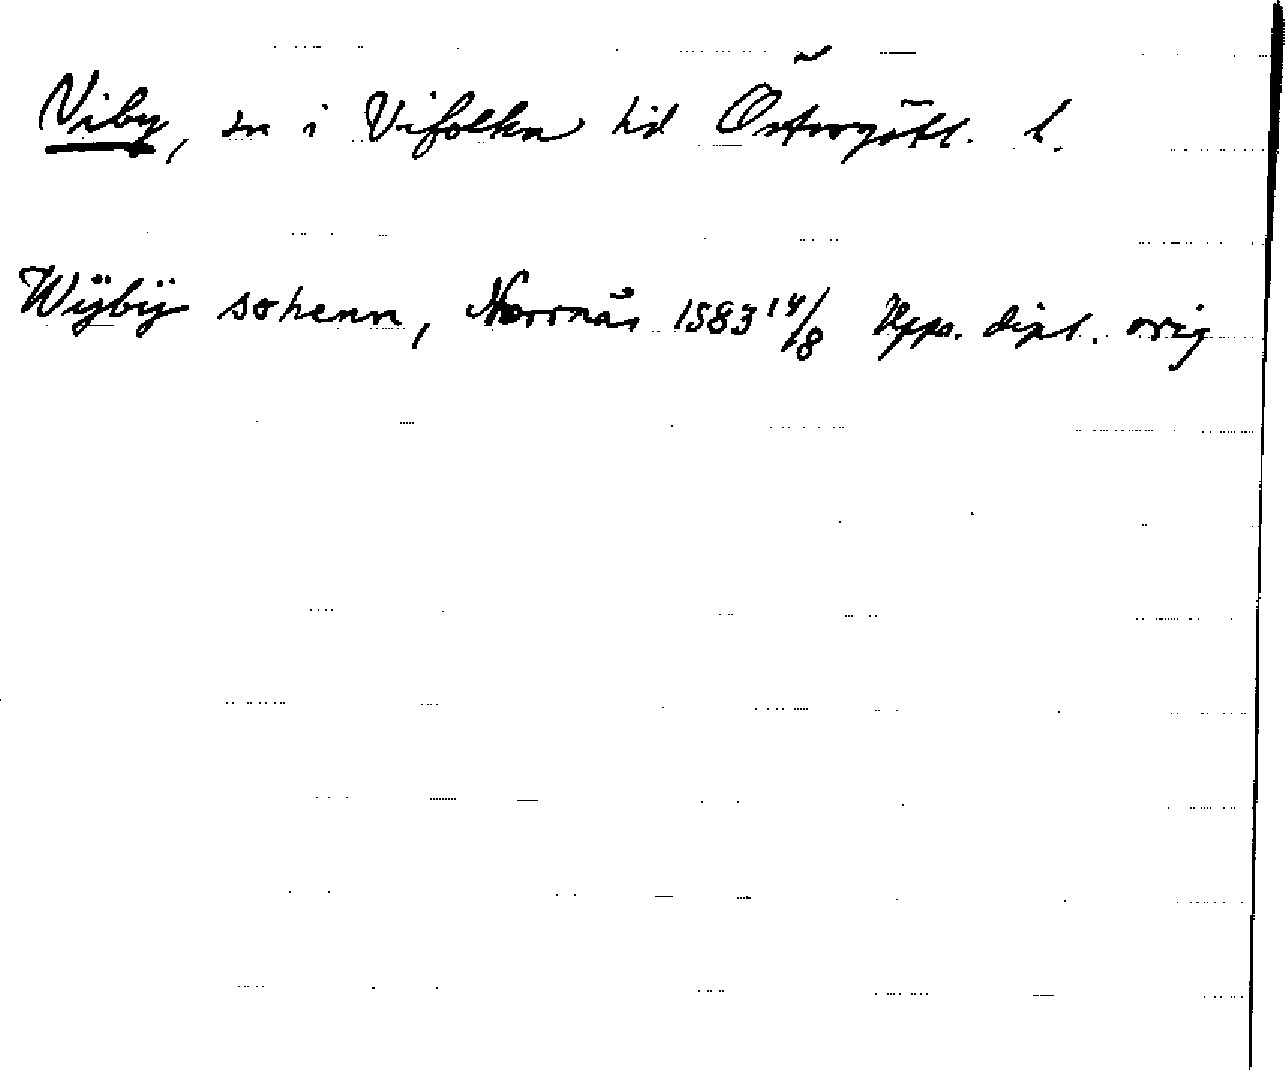 Viby, sn i Vifolka hd Östergötl. l.
Wÿbÿ sokenn, Norrnäs 1583 14/8 Upps. dipl. orig